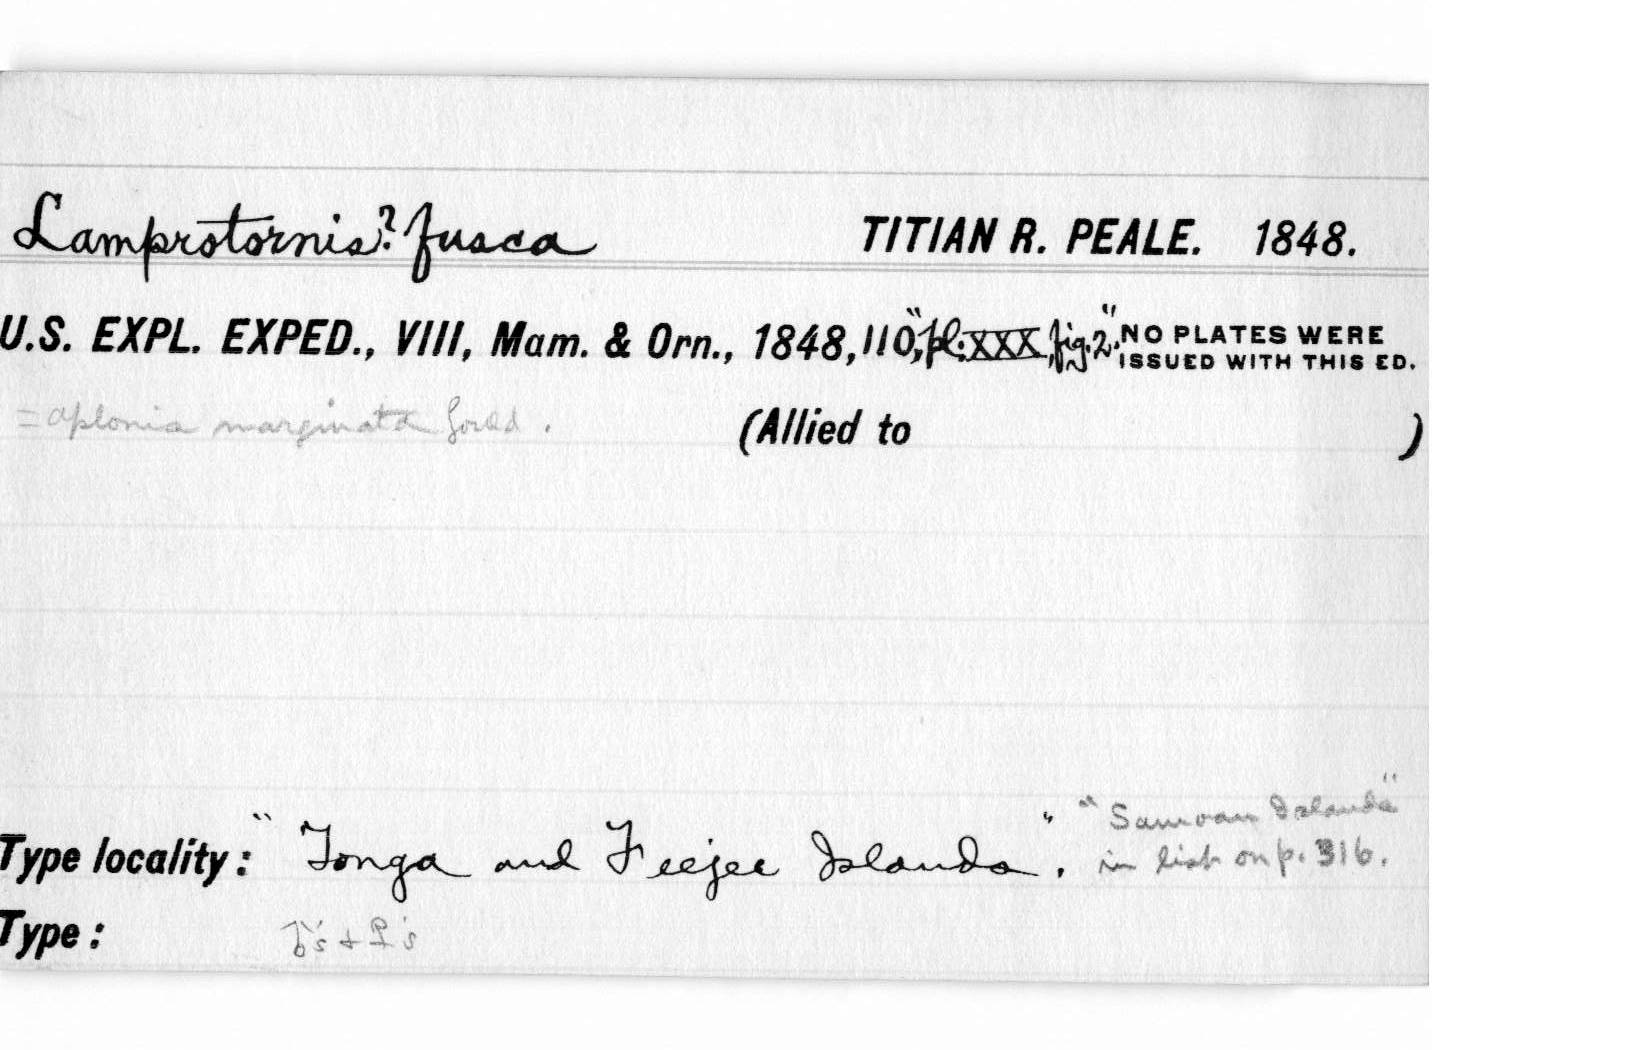 Lamprotornis? fusca TITIAN R. PEALE. 1848.
U.S. EXPL. EXPED., VIII, Mam. & Orn., 1848, 110, "pl. XXX, fig. 2". NO PLATES WERE
ISSUED WITH THIS ED.
= aplonis marginata Gould. (Allied to )
Type locality: "Tonga and Feejee Islands". "Samoan Islands"
in list on p. 316.
Type: ♂'s + ♀'s